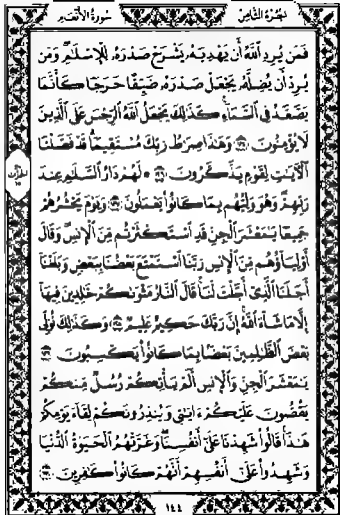 الجزء الثامن
سورة الأنعام
فَمَن يُرِدِ ٱللَّهُ أَن يَهْدِيَهُۥ يَشْرَحْ صَدْرَهُۥ لِلْإِسْلَٰمِ ۖ وَمَن
يُرِدْ أَن يُضِلَّهُۥ يَجْعَلْ صَدْرَهُۥ ضَيِّقًا حَرَجًا كَأَنَّمَا
يَصَّعَّدُ فِى ٱلسَّمَآءِ ۚ كَذَٰلِكَ يَجْعَلُ ٱللَّهُ ٱلرِّجْسَ عَلَى ٱلَّذِينَ
لَا يُؤْمِنُونَ ۝١٢٥ وَهَٰذَا صِرَٰطُ رَبِّكَ مُسْتَقِيمًا ۗ قَدْ فَصَّلْنَا
ٱلْءَايَٰتِ لِقَوْمٍ يَذَّكَّرُونَ ۝١٢٦ لَهُمْ دَارُ ٱلسَّلَٰمِ عِندَ
رَبِّهِمْ ۖ وَهُوَ وَلِيُّهُم بِمَا كَانُوا۟ يَعْمَلُونَ ۝١٢٧ وَيَوْمَ يَحْشُرُهُمْ
جَمِيعًا يَٰمَعْشَرَ ٱلْجِنِّ قَدِ ٱسْتَكْثَرْتُم مِّنَ ٱلْإِنسِ ۖ وَقَالَ
أَوْلِيَآؤُهُم مِّنَ ٱلْإِنسِ رَبَّنَا ٱسْتَمْتَعَ بَعْضُنَا بِبَعْضٍ وَبَلَغْنَآ
أَجَلَنَا ٱلَّذِىٓ أَجَّلْتَ لَنَا ۚ قَالَ ٱلنَّارُ مَثْوَىٰكُمْ خَٰلِدِينَ فِيهَآ
إِلَّا مَا شَآءَ ٱللَّهُ ۗ إِنَّ رَبَّكَ حَكِيمٌ عَلِيمٌ ۝١٢٨ وَكَذَٰلِكَ نُوَلِّى
بَعْضَ ٱلظَّٰلِمِينَ بَعْضًۢا بِمَا كَانُوا۟ يَكْسِبُونَ ۝١٢٩
يَٰمَعْشَرَ ٱلْجِنِّ وَٱلْإِنسِ أَلَمْ يَأْتِكُمْ رُسُلٌ مِّنكُمْ
يَقُصُّونَ عَلَيْكُمْ ءَايَٰتِى وَيُنذِرُونَكُمْ لِقَآءَ يَوْمِكُمْ
هَٰذَا ۚ قَالُوا۟ شَهِدْنَا عَلَىٰٓ أَنفُسِنَا ۖ وَغَرَّتْهُمُ ٱلْحَيَوٰةُ ٱلدُّنْيَا
وَشَهِدُوا۟ عَلَىٰٓ أَنفُسِهِمْ أَنَّهُمْ كَانُوا۟ كَٰفِرِينَ ۝١٣٠
١٤٤